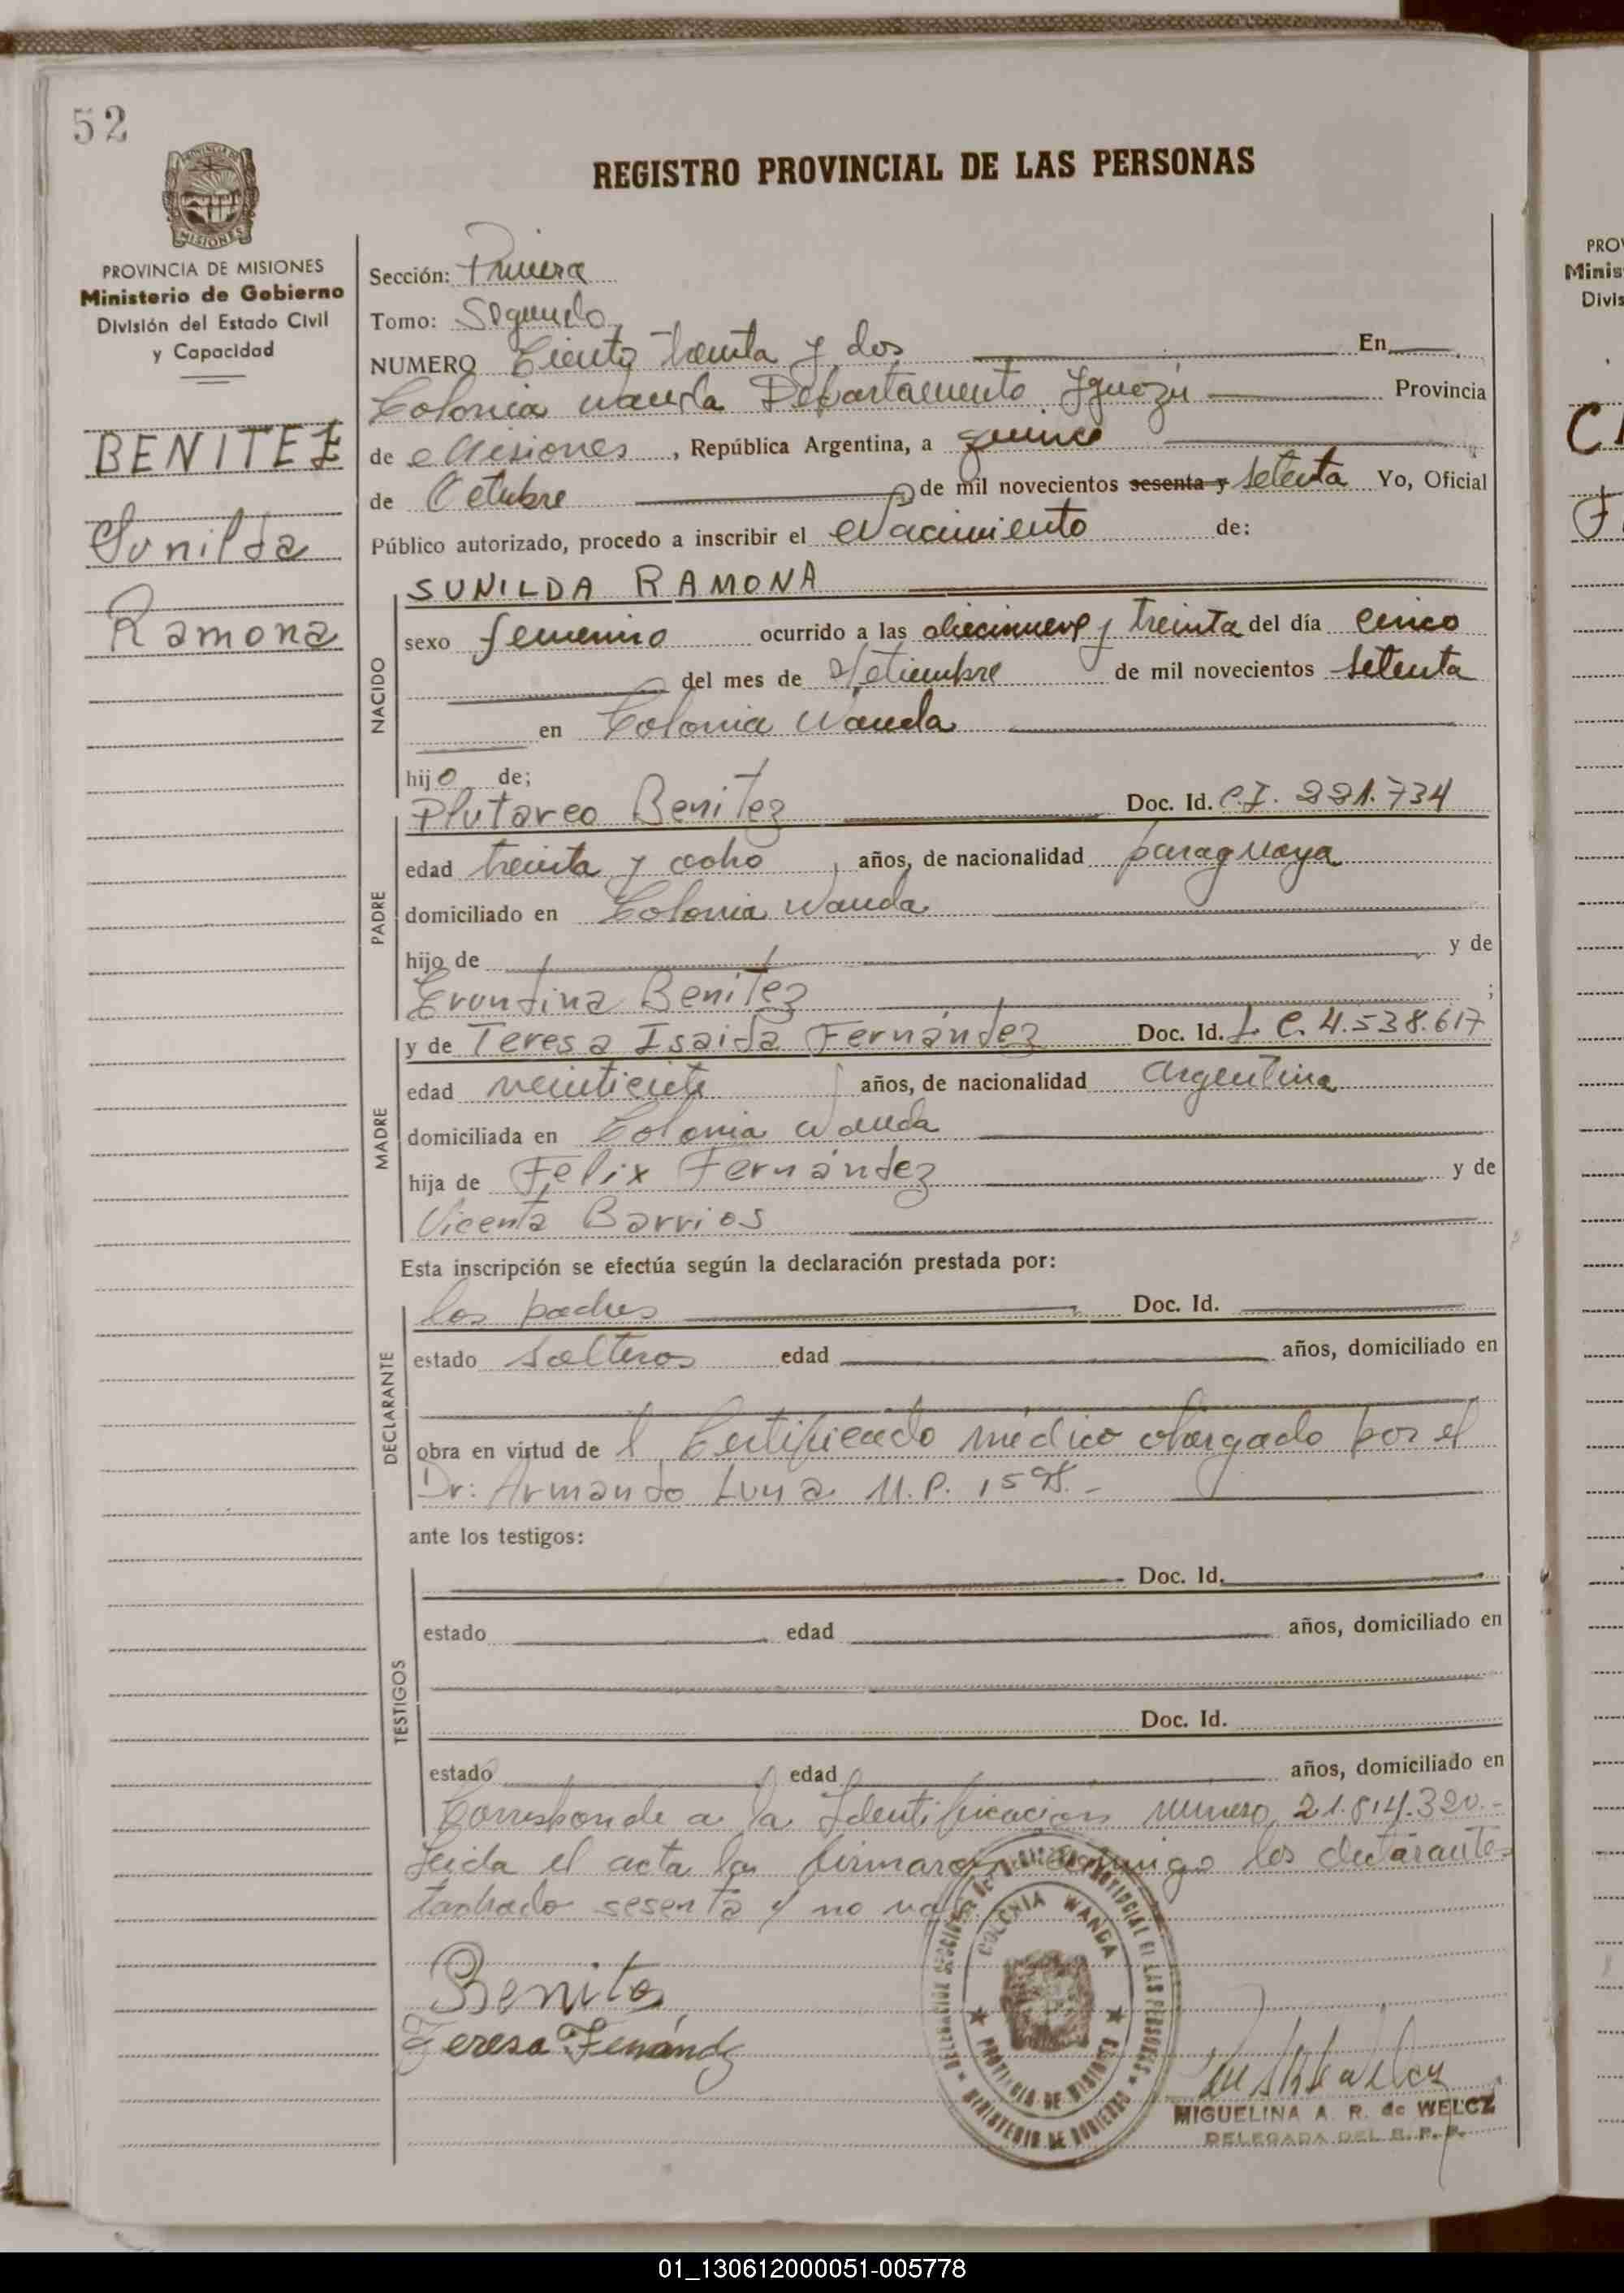 52
REGISTRO PROVINCIAL DE LAS PERSONAS
PROVINCIA DE
MISIONES
PROVINCIA DE MISIONES
Ministerio de Gobierno
División del Estado Civil
y Capacidad
BENITEZ
Sunilda
Ramona
Sección: Primera
Tomo: Segundo
NUMERO Ciento treinta y dos En
Colonia Wanda Departamento Iguazú Provincia
de Misiones, República Argentina, a quince
de Octubre de mil novecientos sesenta y setenta Yo, Oficial
Público autorizado, procedo a inscribir el Nacimiento de:
NACIDO
SUNILDA RAMONA
sexo femenino ocurrido a las diecinueve y treinta del día cinco
del mes de Setiembre de mil novecientos setenta
en Colonia Wanda
hijo de;
PADRE
Plutarco Benitez Doc. Id. C.I. 221.734
edad treinta y ocho, años, de nacionalidad paraguaya
domiciliado en Colonia Wanda
hijo de y de
Benitez ;
MADRE
y de Teresa Isaida Fernández Doc. Id. L.C. 4.538.617
edad años, de nacionalidad argentina
domiciliada en Colonia Wanda
hija de Felix Fernández y de
Vicenta Barrios
Esta inscripción se efectúa según la declaración prestada por:
DECLARANTE
los padres Doc. Id.
estado solteros edad años, domiciliado en
obra en virtud de l Certificado médico otorgado por el
Dr: Armando Luna M.P.
ante los testigos:
TESTIGOS
Doc. Id.
estado edad años, domiciliado en
Doc. Id.
estado edad años, domiciliado en
Corresponde a la Identificación número 21.814.320.-
Leida el acta la firmaron conmigo los declarantes
tachado sesenta y no vale
COLONIA WANDA
PROVINCIA DE MISIONES
MINISTERIO DE GOBIERNO
Benitez
Teresa Fernández
MIGUELINA A. R. de WELCZ
DELEGADA DEL R. P. P.
PRO
Minis
Divis
01_130612000051-005778